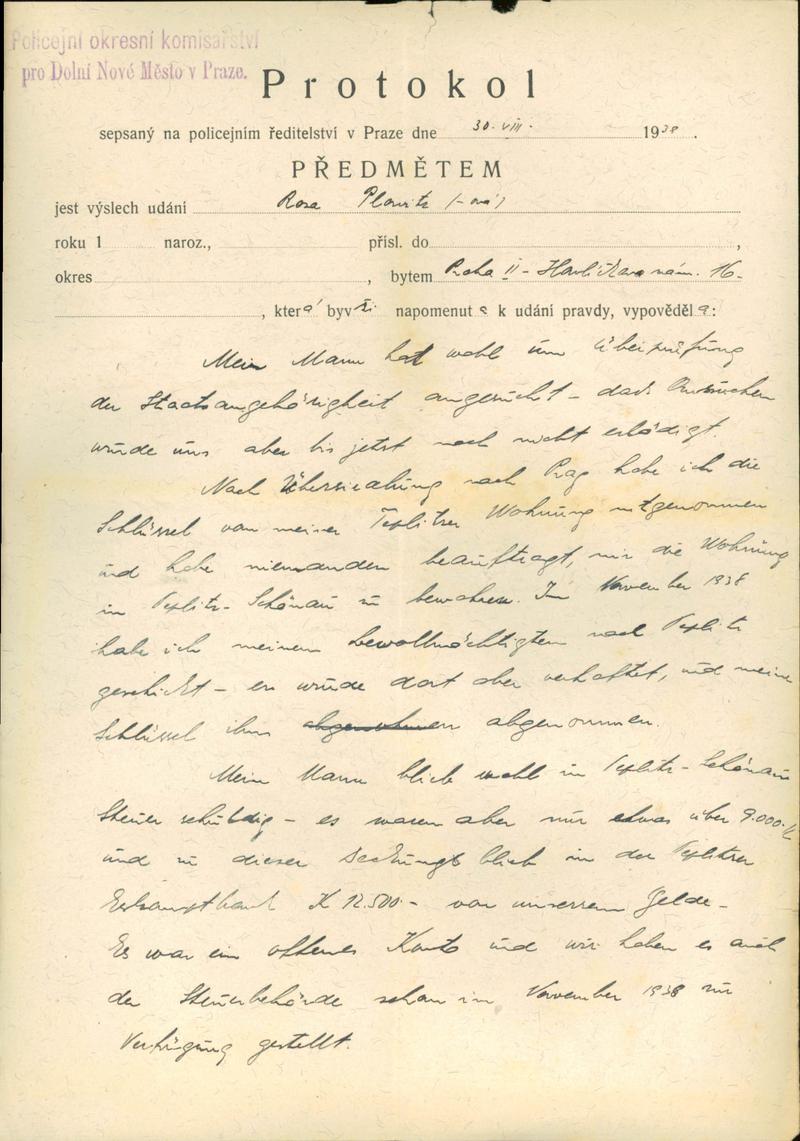 Policejní okresní komisařství
pro Dolní Nové Město v Praze.
Protokol
sepsaný na policejním ředitelství v Praze dne 30. VIII. 1938.
PŘEDMĚTEM
jest výslech udání Rosa Plowitz (-ová)
roku 1 naroz., přísl. do ,
okres , bytem Praha II - Havlíčkovo nám. 16-
, která byvši napomenuta k udání pravdy, vypověděla:
Mein Mann hat wohl um Überprüfung
der Staatsangehörigkeit angesucht - das Ansuchen
wurde uns aber bis jetzt noch nicht erledigt.
Nach Übersiedlung nach Prag habe ich die
Schlüssel von meiner Teplitzer Wohnung mitgenommen
und habe niemanden beauftragt, mir die Wohnung
in Teplitz-Schönau zu bewahren. Im November 1938
habe ich meinem bewollmächtigten nach Teplitz
geschickt - er wurde dort aber verhaftet, und meine
Schlüssel ihm abgenommen.
Mein Mann blieb wohl in Teplitz-Schönau
Steuer schuldig - es waren aber nur etwas über 9.000.-K
und zu dieser Deckung blieb in der Teplitzer
K 12.500.- von unserem Gelde -
Es war ein offenes Konto und wir haben es auch
der Steuerbehörde schon im November 1938 zur
Verfügung gestellt.